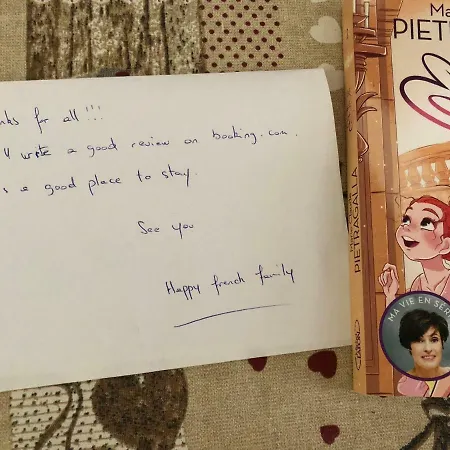 for all !!!
write a good review on booking.com.
a good place to stay.
See you
Happy french family
PIETRAGALLA
MA VIE EN SÉR